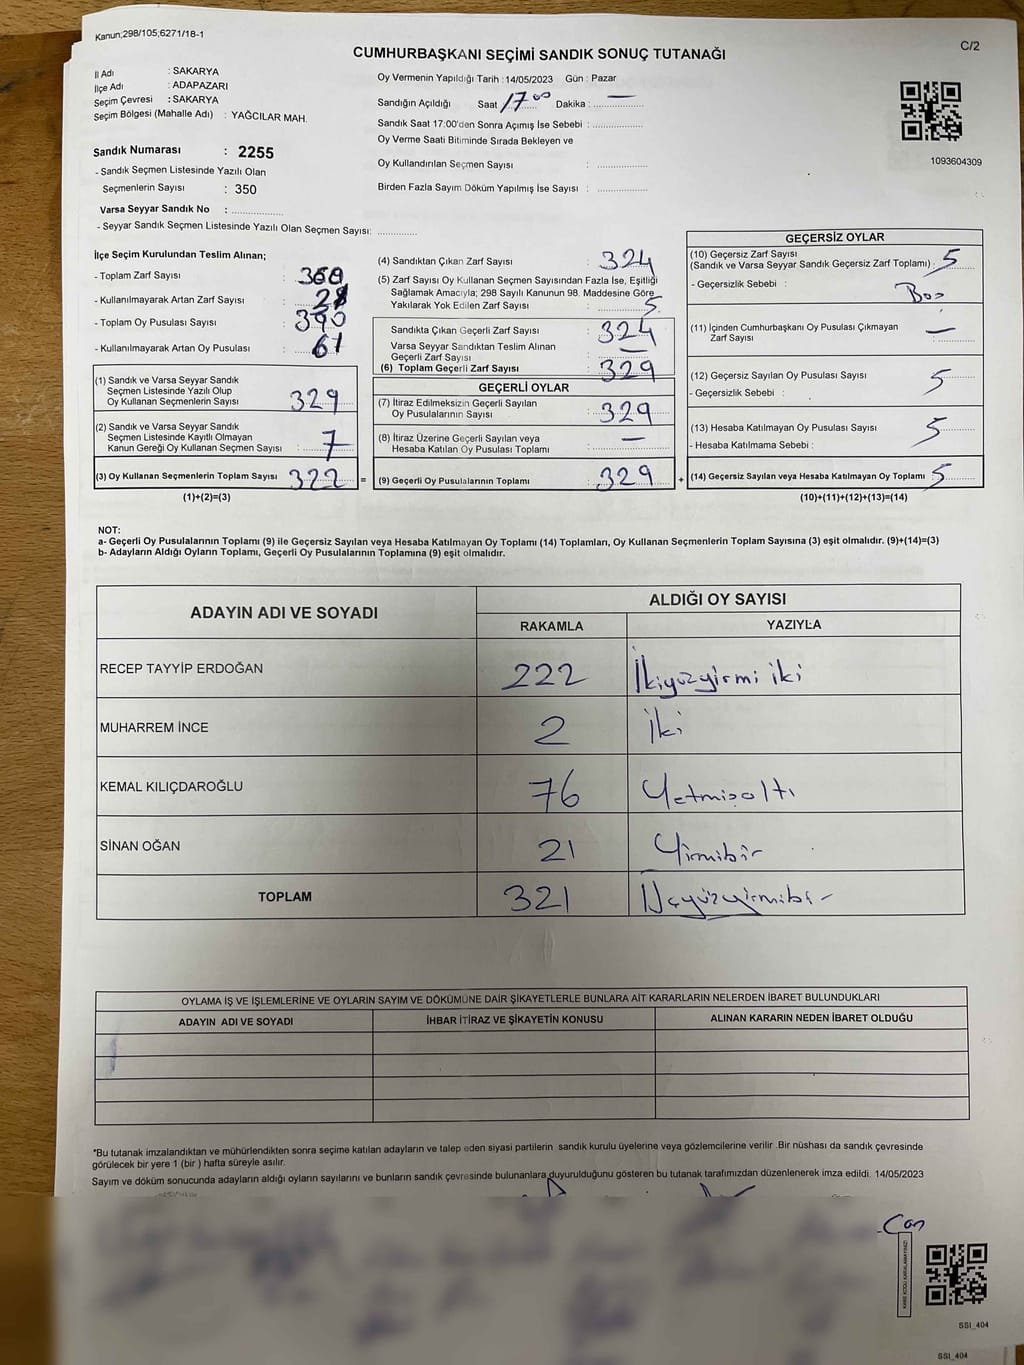 Kanun;298/105;6271/18-1
CUMHURBAŞKANI SEÇİMİ SANDIK SONUÇ TUTANAĞI
C/2
İl Adı : SAKARYA
İlçe Adı : ADAPAZARI
Seçim Çevresi : SAKARYA
Seçim Bölgesi (Mahalle Adı) : YAĞCILAR MAH.
Sandık Numarası : 2255
- Sandık Seçmen Listesinde Yazılı Olan
Seçmenlerin Sayısı : 350
Varsa Seyyar Sandık No : ................
- Seyyar Sandık Seçmen Listesinde Yazılı Olan Seçmen Sayısı: ............
Oy Vermenin Yapıldığı Tarih : 14/05/2023 Gün : Pazar
Sandığın Açıldığı Saat 17.00 Dakika : — 
Sandık Saat 17:00'den Sonra Açımış İse Sebebi : ................
Oy Verme Saati Bitiminde Sırada Bekleyen ve
Oy Kullandırılan Seçmen Sayısı : ................
Birden Fazla Sayım Döküm Yapılmış İse Sayısı : ................
1093604309
İlçe Seçim Kurulundan Teslim Alınan;
- Toplam Zarf Sayısı :
- Kullanılmayarak Artan Zarf Sayısı :
- Toplam Oy Pusulası Sayısı : 390
- Kullanılmayarak Artan Oy Pusulası : 61
(1) Sandık ve Varsa Seyyar Sandık
Seçmen Listesinde Yazılı Olup
Oy Kullanan Seçmenlerin Sayısı : 329
(2) Sandık ve Varsa Seyyar Sandık
Seçmen Listesinde Kayıtlı Olmayan
Kanun Gereği Oy Kullanan Seçmen Sayısı : 7
(3) Oy Kullanan Seçmenlerin Toplam Sayısı : 322 =
(1)+(2)=(3)
(4) Sandıktan Çıkan Zarf Sayısı : 324
(5) Zarf Sayısı Oy Kullanan Seçmen Sayısından Fazla İse, Eşitliği
Sağlamak Amacıyla; 298 Sayılı Kanunun 98. Maddesine Göre
Yakılarak Yok Edilen Zarf Sayısı : 5
Sandıkta Çıkan Geçerli Zarf Sayısı : 324
Varsa Seyyar Sandıktan Teslim Alınan
Geçerli Zarf Sayısı : —
(6) Toplam Geçerli Zarf Sayısı : 329
GEÇERLİ OYLAR
(7) İtiraz Edilmeksizin Geçerli Sayılan
Oy Pusulalarının Sayısı : 329
(8) İtiraz Üzerine Geçerli Sayılan veya
Hesaba Katılan Oy Pusulası Toplamı : —
(9) Geçerli Oy Pusulalarının Toplamı : 329 +
GEÇERSİZ OYLAR
(10) Geçersiz Zarf Sayısı
(Sandık ve Varsa Seyyar Sandık Geçersiz Zarf Toplamı) : 5
- Geçersizlik Sebebi : Boş
(11) İçinden Cumhurbaşkanı Oy Pusulası Çıkmayan
Zarf Sayısı : —
(12) Geçersiz Sayılan Oy Pusulası Sayısı : 5
- Geçersizlik Sebebi :
(13) Hesaba Katılmayan Oy Pusulası Sayısı : 5
- Hesaba Katılmama Sebebi :
(14) Geçersiz Sayılan veya Hesaba Katılmayan Oy Toplamı : 5
(10)+(11)+(12)+(13)=(14)
NOT:
a- Geçerli Oy Pusulalarının Toplamı (9) ile Geçersiz Sayılan veya Hesaba Katılmayan Oy Toplamı (14) Toplamları, Oy Kullanan Seçmenlerin Toplam Sayısına (3) eşit olmalıdır. (9)+(14)=(3)
b- Adayların Aldığı Oyların Toplamı, Geçerli Oy Pusulalarının Toplamına (9) eşit olmalıdır.
ADAYIN ADI VE SOYADI ALDIĞI OY SAYISI
RAKAMLA YAZIYLA
RECEP TAYYİP ERDOĞAN 222 İkiyüzyirmi iki
MUHARREM İNCE 2 İki
KEMAL KILIÇDAROĞLU 76 Yetmişaltı
SİNAN OĞAN 21 Yirmibir
TOPLAM 321 Üçyüzyirmibir
OYLAMA İŞ VE İŞLEMLERİNE VE OYLARIN SAYIM VE DÖKÜMÜNE DAİR ŞİKAYETLERLE BUNLARA AİT KARARLARIN NELERDEN İBARET BULUNDUKLARI
ADAYIN ADI VE SOYADI İHBAR İTİRAZ VE ŞİKAYETİN KONUSU ALINAN KARARIN NEDEN İBARET OLDUĞU
*Bu tutanak imzalandıktan ve mühürlendikten sonra seçime katılan adayların ve talep eden siyasi partilerin sandık kurulu üyelerine veya gözlemcilerine verilir .Bir nüshası da sandık çevresinde
görülecek bir yere 1 (bir ) hafta süreyle asılır.
Sayım ve döküm sonucunda adayların aldığı oyların sayılarını ve bunların sandık çevresinde bulunanlara duyurulduğunu gösteren bu tutanak tarafımızdan düzenlenerek imza edildi. 14/05/2023
Can
KARE KODU KARALAMAYINIZ!
SSI_404
SSI_404